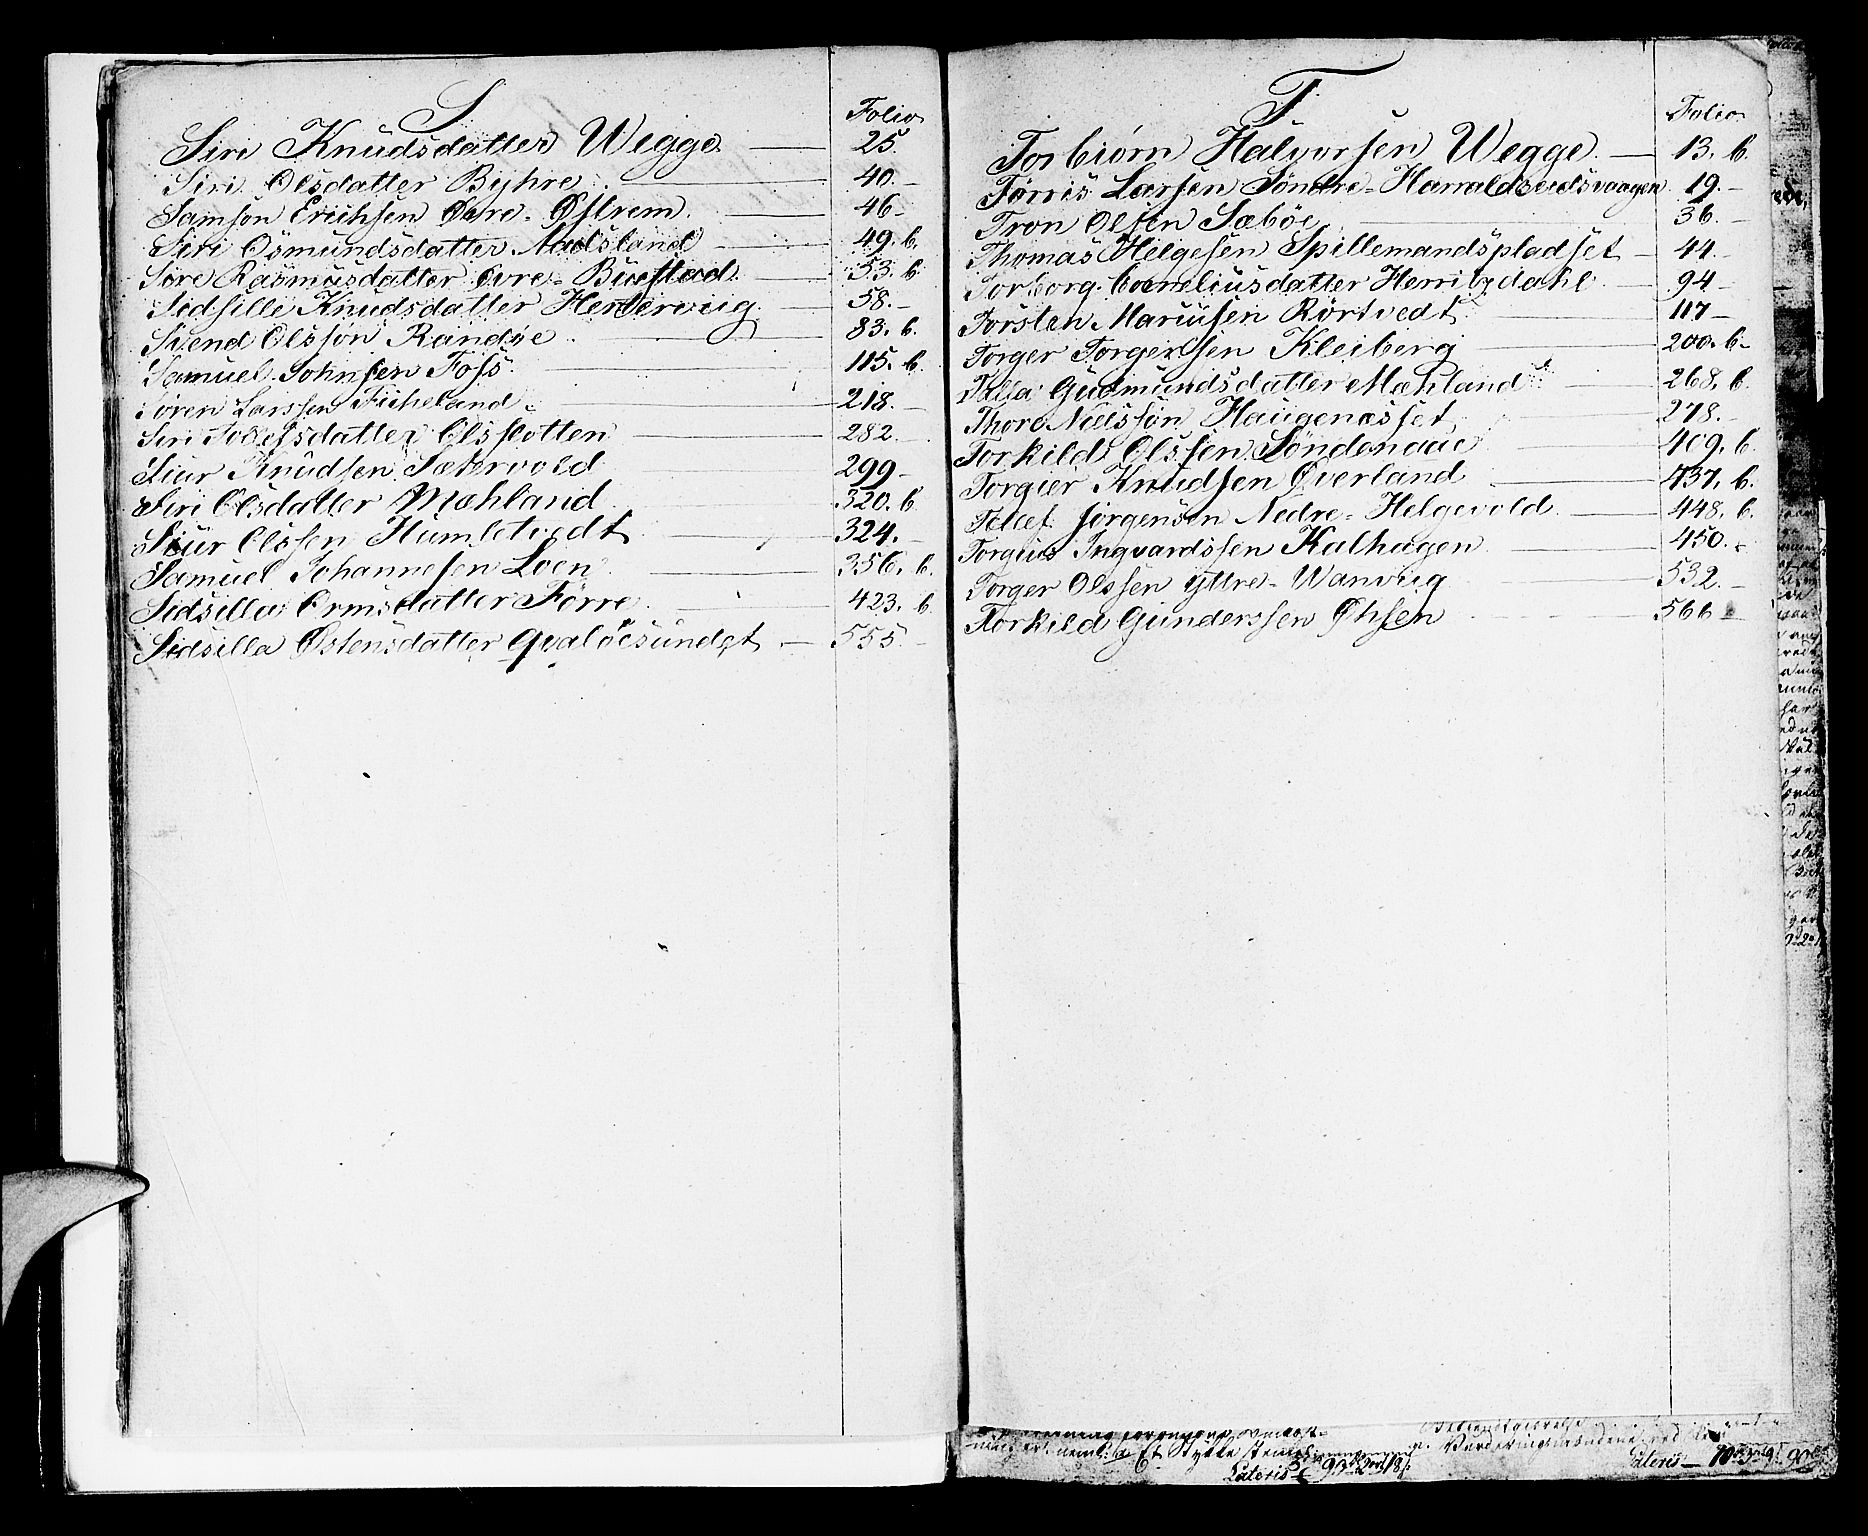 S
Folio
Siri Knudsdatter Wegge 25
Siri Olsdatter Byhre 40.
Samson Erichsen Øvre-Østrem 46
Siri Osmundsdatter Aadsland 49. b.
Sire Rasmusdatter Øvre-Buestad 53. b
Sidsille Knudsdatter Herdervug 58.
Svend Olssøn Randøe 83. b.
Samuel Johnsen Foss 115. b.
Søren Larssen Fiskeland 218.
Siri Josefsdatter Olsslotten 282.
Siur Knudsen Sætervold 299
Siri Olsdatter Mæhland 320. b
Siur Olssen Humletvedt 324.
Samuel Johannesen Loen 356. b.
Sidsilla Ormsdatter Førre 423. b
Sidsilla Østensdatter Qvaløesundet 555.
T
Folio
Torbiørn Halvorsen Wegge 13. b.
Tørris Larsen Søndre-Harraldseidsvaagen 19.
Tron Olsen Sæbøe 36.
Thomas Helgesen Spillemandspladset 44.
Torborg Corneliusdatter Herribydahl 94
Torsten Mariusen Rørtvedt 117
Torger Torgersen Kleiberg 200. b
Talla Gudmundsdatter Mæhland 268. b.
Thore Nielssøn Haugenæsset 278.
Torkild Olssen Søndenaae 409. b.
Torgier Knudsen Øverland 437. b.
Tellef Jørgensen Nedre-Helgevold 448. b.
Torgius Ingvardssen Kalhagen 450.
Torger Olssen Yttre-Wanvug 532.
Torkild Gunderssen Øhsen 566